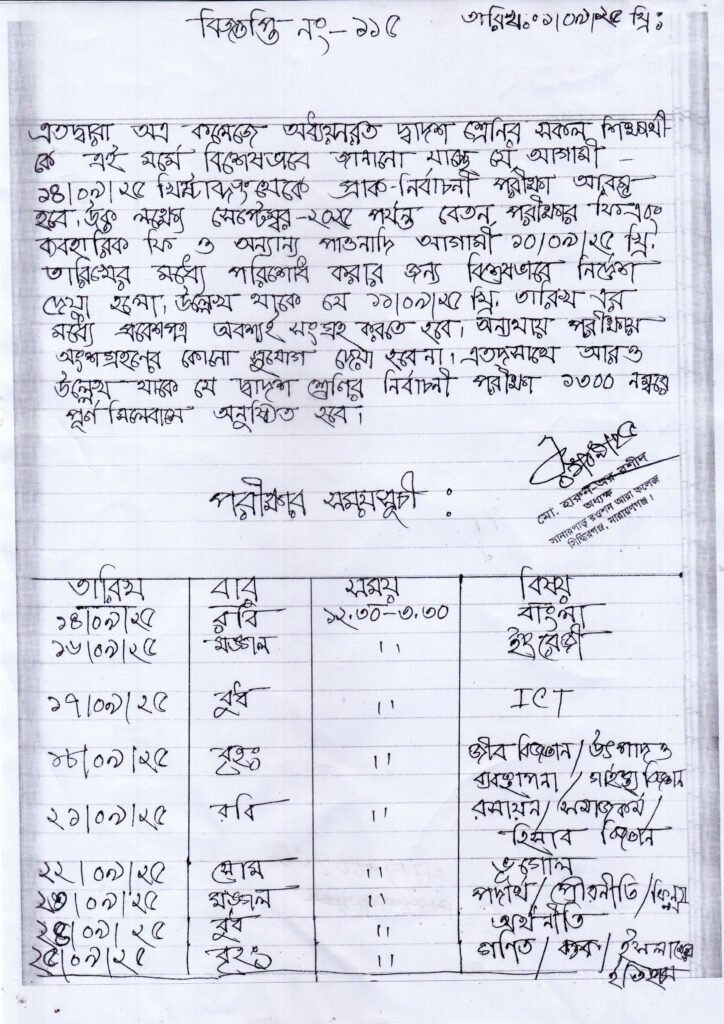 বিজ্ঞপ্তি নং- ১১৫
তারিখঃ ১/০৯/২৫ খ্রি:
এতদ্বারা অত্র কলেজে অধ্যয়নরত দ্বাদশ শ্রেনির সকল শিক্ষার্থী-
কে এই মর্মে বিশেষভাবে জানানো যাচ্ছে যে আগামী -
১৪/০৯/২৫ খ্রিষ্টাব্দ থেকে প্রাক-নির্বাচনী পরীক্ষা আরম্ভ
হবে। উক্ত লক্ষ্যে সেপ্টেম্বর-২০২৫ পর্যন্ত বেতন, পরীক্ষার ফি এবং
ব্যবহারিক ফি ও অন্যান্য পাওনাদি আগামী ১০/০৯/২৫ খ্রি.
তারিখের মধ্যে পরিশোধ করার জন্য বিশেষভাবে নির্দেশ
দেয়া হলো। উল্লেখ থাকে যে ১১/০৯/২৫ খ্রি. তারিখ এর
মধ্যে প্রবেশপত্র অবশ্যই সংগ্রহ করতে হবে। অন্যথায় পরীক্ষায়
অংশগ্রহনের কোনো সুযোগ দেয়া হবে না। এতদসাথে আরও
উল্লেখ থাকে যে দ্বাদশ শ্রেনির নির্বাচনী পরীক্ষা ১৩০০ নম্বরে
পূর্ণ সিলেবাসে অনুষ্ঠিত হবে।
মো. হারুন-অর রশীদ
অধ্যক্ষ
সানারপাড় রওশন আরা কলেজ
সিদ্ধিরগঞ্জ, নারায়ণগঞ্জ।
পরীক্ষার সময়সূচী :
তারিখ বার সময় বিষয়
১৪/০৯/২৫ রবি ১২.৩০-৩.৩০ বাংলা
১৬/০৯/২৫ মঙ্গল " ইংরেজী
১৭/০৯/২৫ বুধ " ICT
১৮/০৯/২৫ বৃহঃ " জীব বিজ্ঞান / উৎপাদন ও
ব্যবস্থাপনা / গার্হস্থ্য বিজ্ঞান
২১/০৯/২৫ রবি " রসায়ন / সমাজকর্ম /
হিসাব বিজ্ঞান
২২/০৯/২৫ সোম " ভূগোল
২৩/০৯/২৫ মঙ্গল " পদার্থ / পৌরনীতি /
২৪/০৯/২৫ বুধ " অর্থনীতি
২৫/০৯/২৫ বৃহঃ " গণিত / / ইসলামের
ইতিহাস